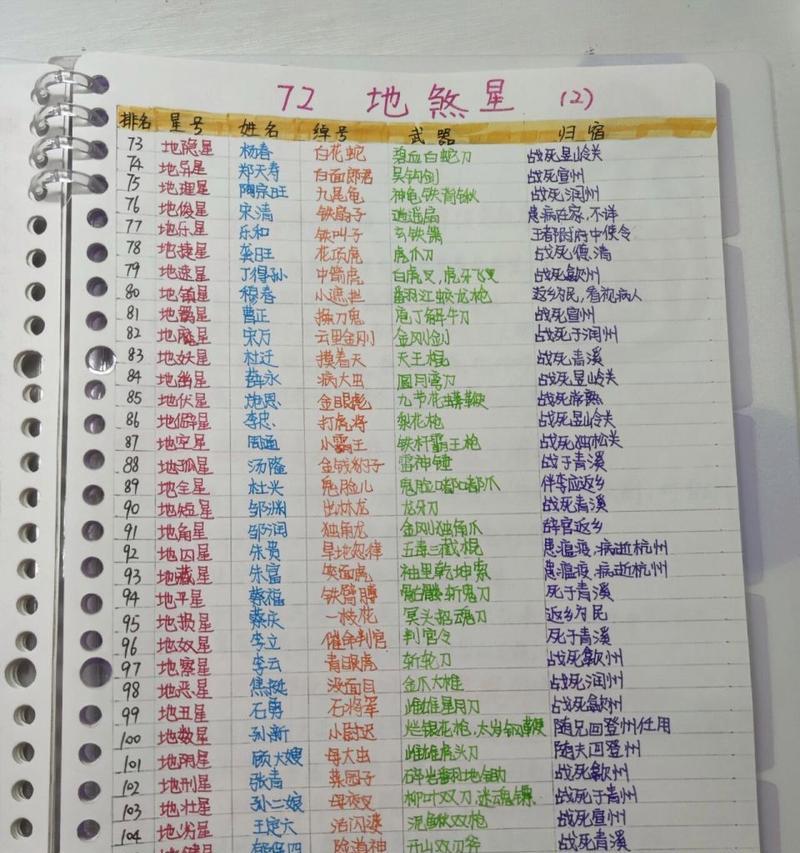 72 地煞星 (2)
排名 星号 姓名 绰号 武器 归宿
73 地隐星 杨春 白花蛇 碧血白蛇刀 战死昱岭关
74 地异星 郑天寿 白面郎君 吴钩剑 战死宣州
75 地理星 陶宗旺 九尾龟 神龟铁背锹 战死润州
76 地俊星 宋清 铁扇子 逍遥扇 患病在家,不详
77 地乐星 乐和 铁叫子 玄铁箫 王都尉府中使令
78 地捷星 龚旺 花项虎 虎爪刀 战死德清
79 地速星 丁得孙 中箭虎 白虎叉,虎牙飞叉 战死歙州
80 地镇星 穆春 小遮拦 翻江蛟龙枪 返乡为民,看视病人
81 地羁星 曹正 操刀鬼 庖丁解牛刀 战死宣州
82 地魔星 宋万 云里金刚 金刚剑 战死于润州
83 地妖星 杜迁 摸着天 天王棍 战死青溪
84 地幽星 薛永 病大虫 圆月弯刀 战死昱岭关
85 地伏星 施恩 金眼彪 九节花蟒鞭 战死常熟
86 地僻星 李忠 打虎将 梨花枪 战死昱岭关
87 地空星 周通 小霸王 铁杆霸王枪 战死独松关
88 地孤星 汤隆 金钱豹子 雷神锤 战于青溪
89 地全星 杜兴 鬼脸儿 鬼脸嘟嘟爪 伴李应返乡
90 地短星 邹渊 出林龙 龙牙刀 战死青溪
91 地角星 邹润 独角龙 金刚独角爪 辞官返乡
92 地囚星 朱贵 旱地忽律 五毒三截棍 患瘟疫,病逝杭州
93 地藏星 朱富 笑面虎 袖里乾坤索 患瘟疫,病逝杭州
94 地平星 蔡福 铁臂膊 骷髅斩鬼刀 死于青溪
95 地损星 蔡庆 一枝花 冥头招魂刀 返乡为民
96 地奴星 李立 催命判官 判官令 死于青溪
97 地察星 李云 青眼虎 斩轮刀 战死歙州
98 地恶星 焦挺 没面目 金爪大椎 战死润州
99 地丑星 石勇 石将军 雌雄星月刀 战死歙州
100 地数星 孙新 小尉迟 烂银花枪,太岁钢鞭 随兄回登州任用
101 地阴星 顾大嫂 母大虫 雌雄虎头刀 随夫回登州
102 地刑星 张青 菜园子 碎岩翻地锄 战死歙州
103 地壮星 孙二娘 母夜叉 柳叶双刀,迷魂镖 战死于青州
104 地劣星 王定六 活闪婆 泥鳅双枪 战死宣州
地健星 郁保四 险道神 开山双刃斧 战死青溪